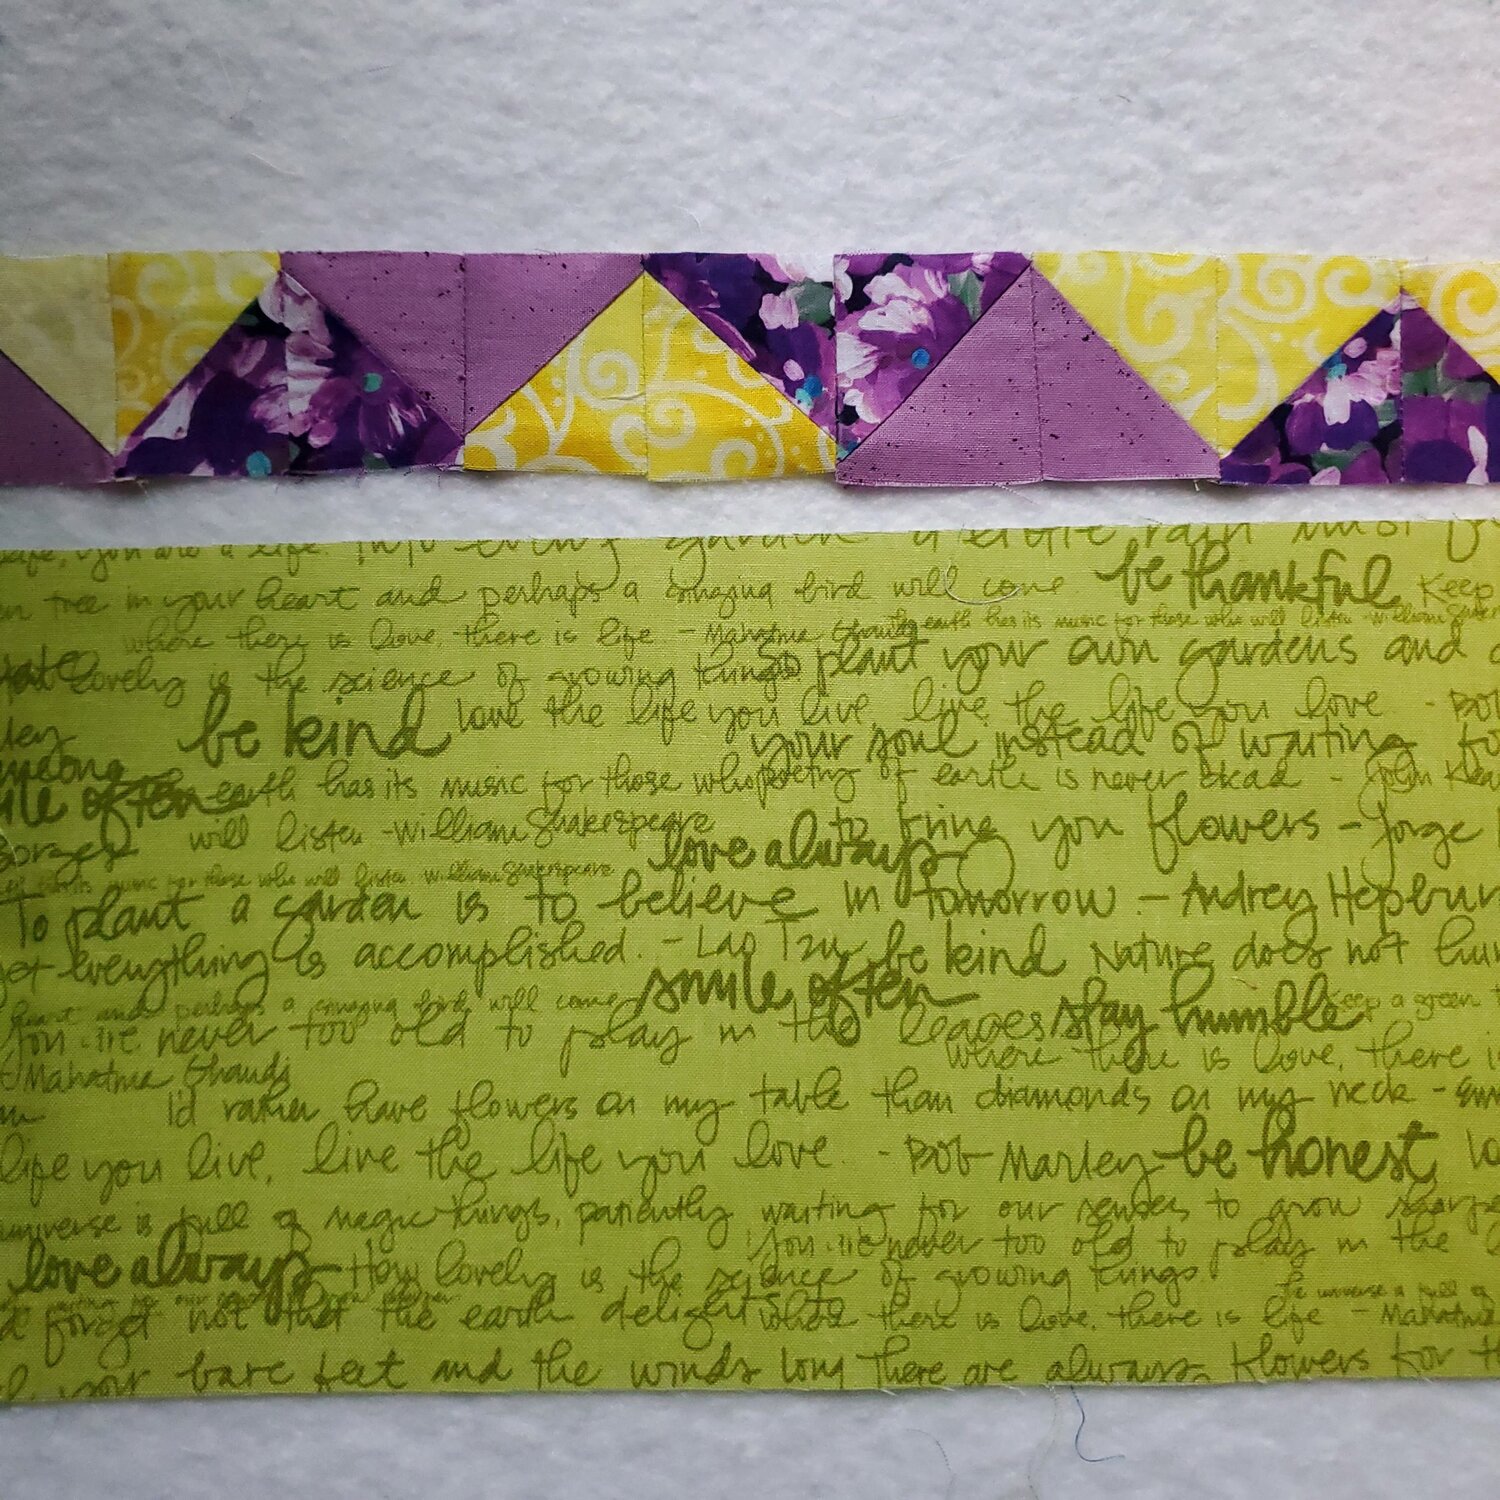 you are a life. Into every garden a little rain must
tree in your heart and perhaps a singing bird will come be thankful Keep
where there is love, there is life - Mahatma Ghandi earth has its music for those who will listen - William
lovely is the science of growing things So plant your own gardens and
be kind love the life you live, live the life you love - Bob
your soul instead of waiting for
earth has its music for those who poetry of earth is never dead - John
often
will listen - William Shakespeare to bring you flowers - Jorge
love always
music for those who will listen. William Shakespeare
To plant a garden is to believe in tomorrow - Audrey Hepburn
everything is accomplished. - Lao Tzu be kind Nature does not
smile often
heart and perhaps a singing bird will come stay humble Keep a green
You're never too old to play in the leaves
where there is love, there
Mahatma Ghandi
I'd rather have flowers on my table than diamonds on my neck -
life you live, live the life you love. - Bob Marley be honest
universe is full of magic things, patiently waiting for our senses to grow
You're never too old to play in the
love always How lovely is the science of growing things.
the universe is full of
forget not that the earth delights where there is love, there is life - Mahatma
your bare feet and the winds long There are always flowers for